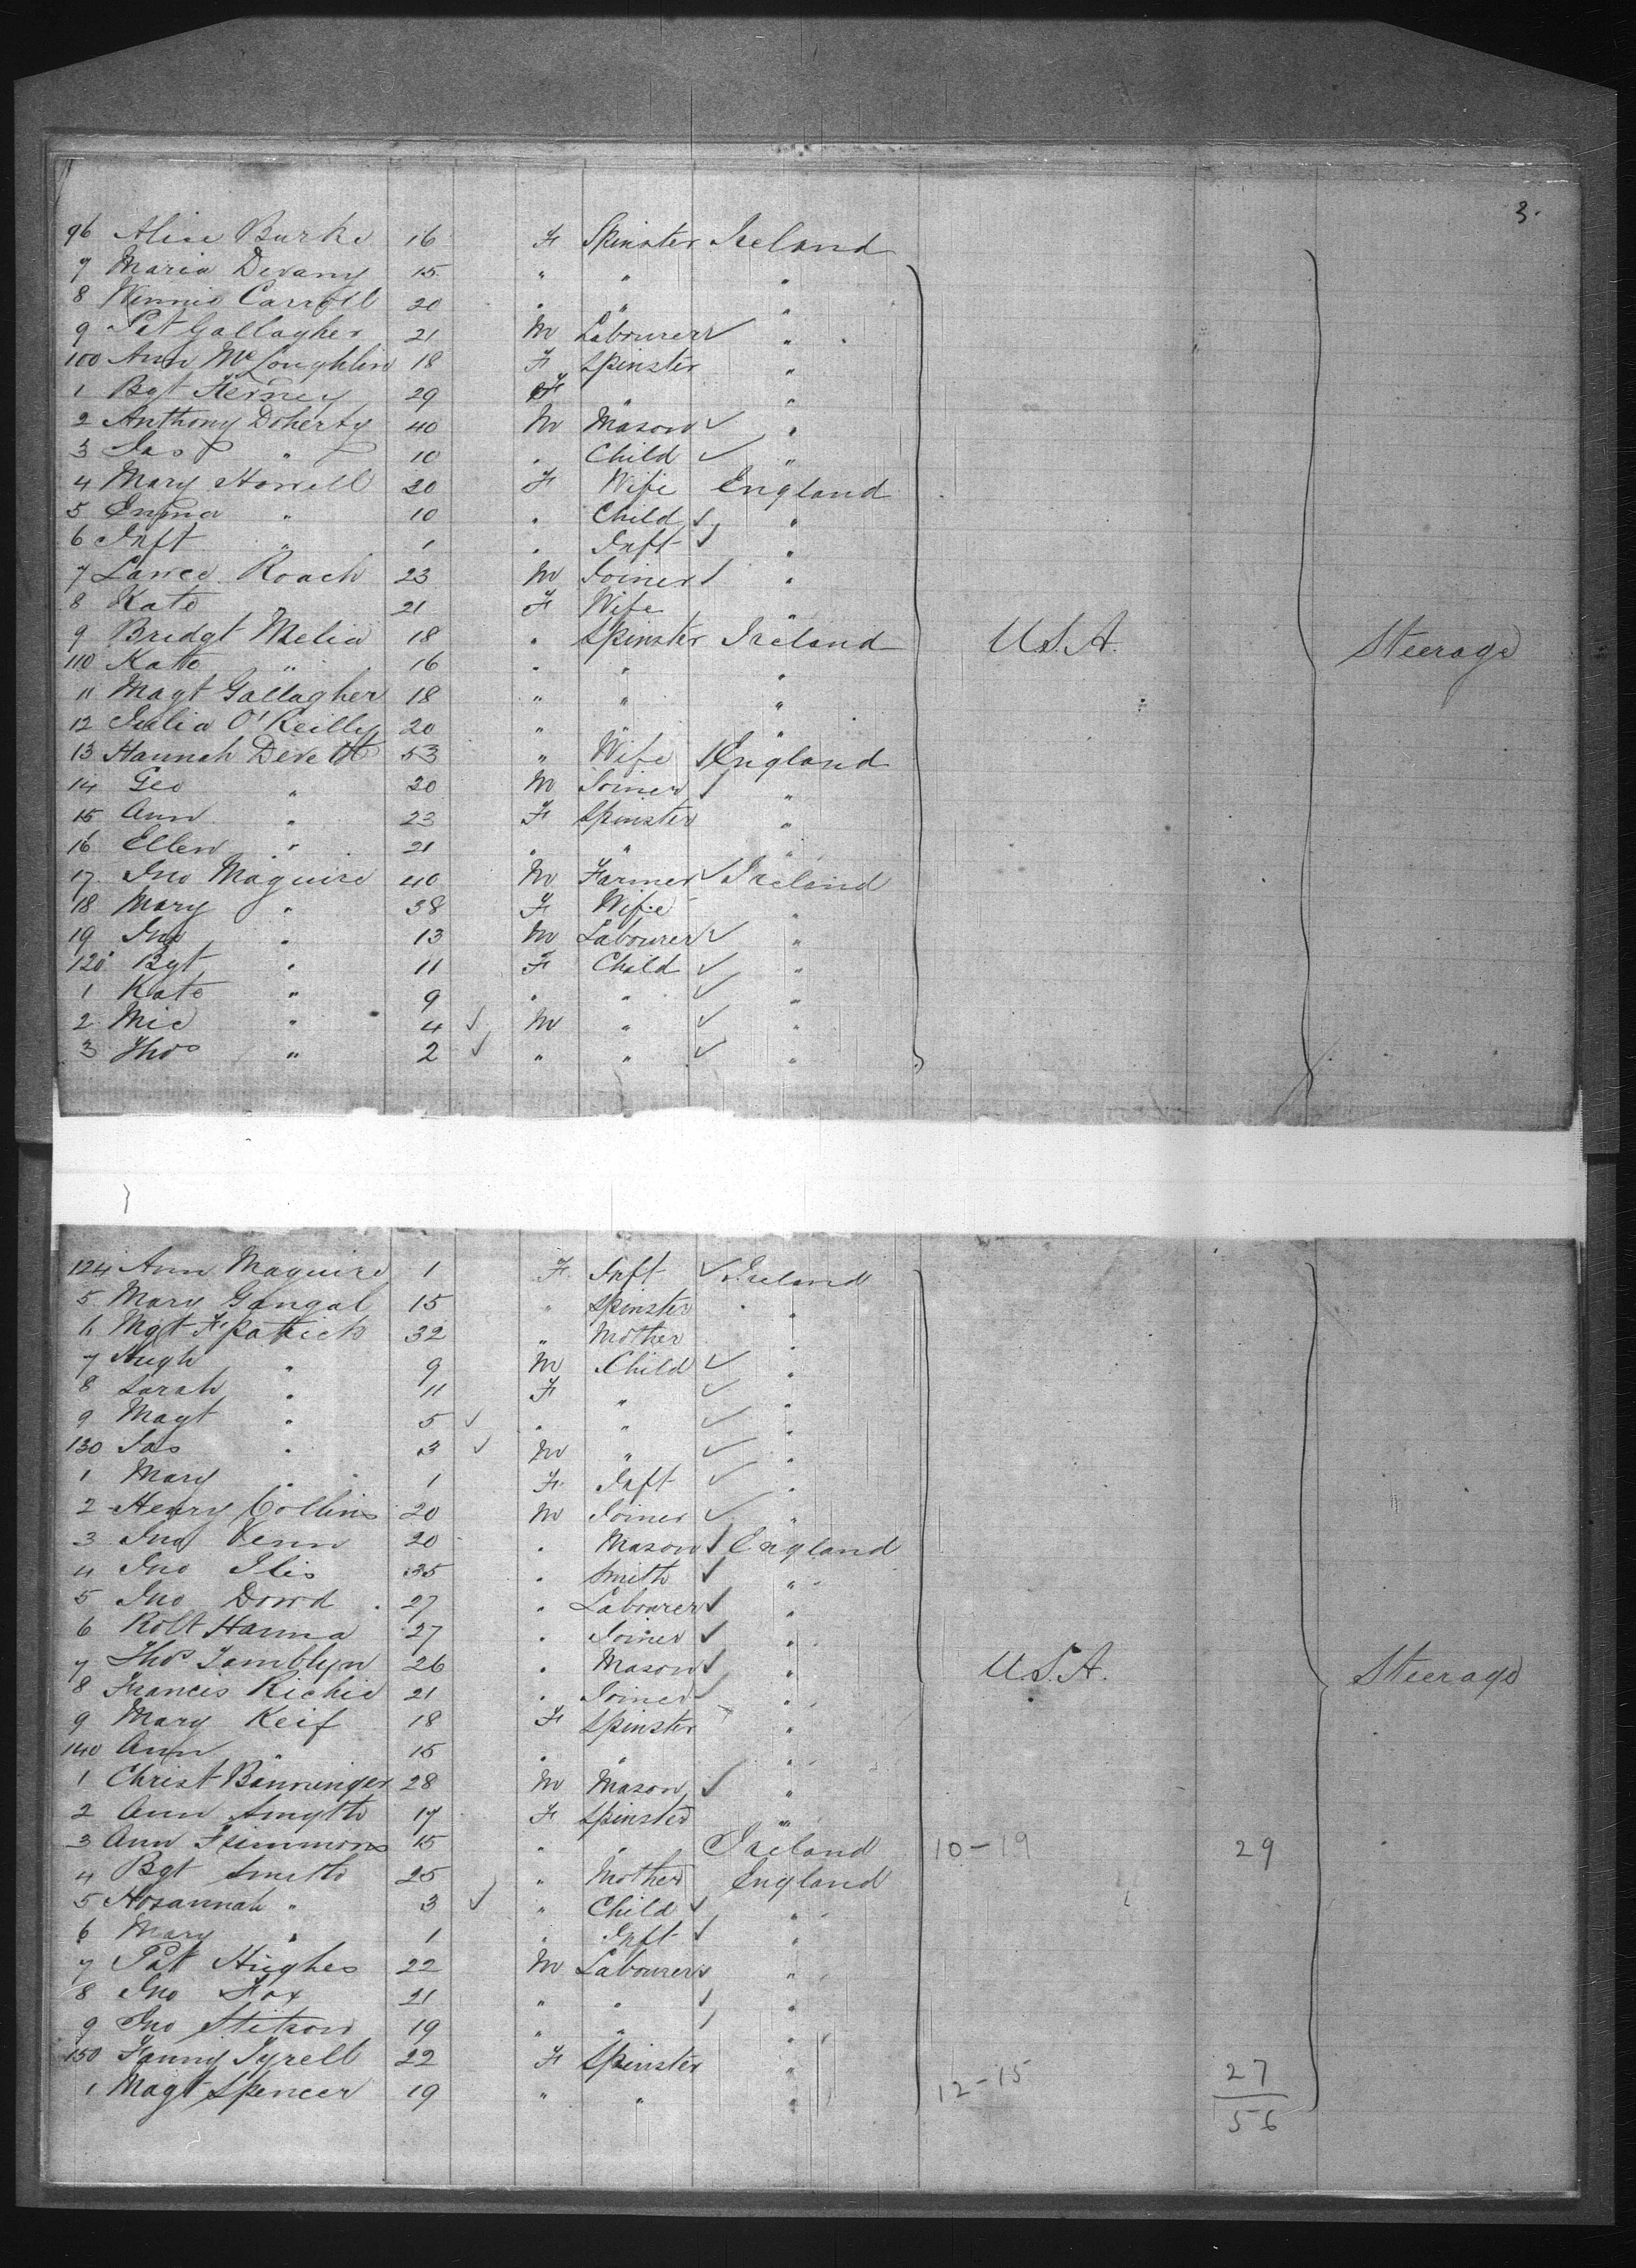 3.
96 Alice Burke 16 F Spinster Ireland
7 Maria Devany 15 " " "
8 Winnie Carroll 20 " " "
9 Pat Gallagher 21 M Labourer ✓ "
100 Ann McLoughlin 18 F Spinster "
1 Bgt 29 F " "
2 Anthony Doherty 40 M Mason ✓ "
3 Jas " 10 " Child ✓ "
4 Mary Howell 20 F Wife England
5 Emma " 10 " Child ✓ "
6 Inft " 1 " Inft ✓ "
7 Lawce Roach 23 M Joiner ✓ "
8 Kate 21 F Wife "
9 Bridgt Melia 18 " Spinster Ireland U.S.A. Steerage
110 Kate " 16 " " "
11 Magt Gallagher 18 " " "
12 Julia O'Reilly 20 " " "
13 Hannah 53 " Wife ✓ England
14 Geo " 20 M Joiner ✓ "
15 Ann " 23 F Spinster "
16 Ellen " 21 " " "
17 Jno Maguire 40 M Farmer ✓ Ireland
18 Mary " 38 F Wife "
19 Jno " 13 M Labourer ✓ "
120 Bgt " 11 F Child ✓ "
1 Kate " 9 " " ✓ "
2 Mic " 4 ✓ M " ✓ "
3 Thos " 2 ✓ " " ✓ "
124 Ann Maguire 1 F Inft ✓ Ireland
5 Mary Gangal 15 " Spinster "
6 Mgt Fpatrick 32 " Mother "
7 Hugh " 9 M Child ✓ "
8 Sarah " 11 F " ✓ "
9 Magt " 5 ✓ " " ✓ "
130 Jas " 3 ✓ M " ✓ "
1 Mary " 1 F Inft ✓ "
2 Henry Collins 20 M Joiner ✓ "
3 Jno Venn 20 " Mason ✓ England
4 Jno Iles 25 " Smith ✓ "
5 Jno Dowd 27 " Labourer ✓ "
6 Robt Hanna 27 " Joiner ✓ "
7 Thos Tamblyn 26 " Mason ✓ " U.S.A. Steerage
8 Francis Richie 21 " Joiner ✓ "
9 Mary Keif 18 F Spinster "
140 Ann " 15 " " "
1 Christ Banninger 28 M Mason ✓ "
2 Ann Smyth 17 F Spinster "
3 Ann Fsimmons 15 " " Ireland 10-19 29
4 Bgt Smith 25 " Mother England
5 Hosannah " 3 ✓ " Child ✓ "
6 Mary " 1 " Inft ✓ "
7 Pat Hughes 22 M Labourer ✓ "
8 Jno Fox 21 " " ✓ "
9 Jno 19 " " ✓ "
150 Fanny Tyrell 22 F Spinster " 27
1 Magt Spencer 19 " " " 12-15
56